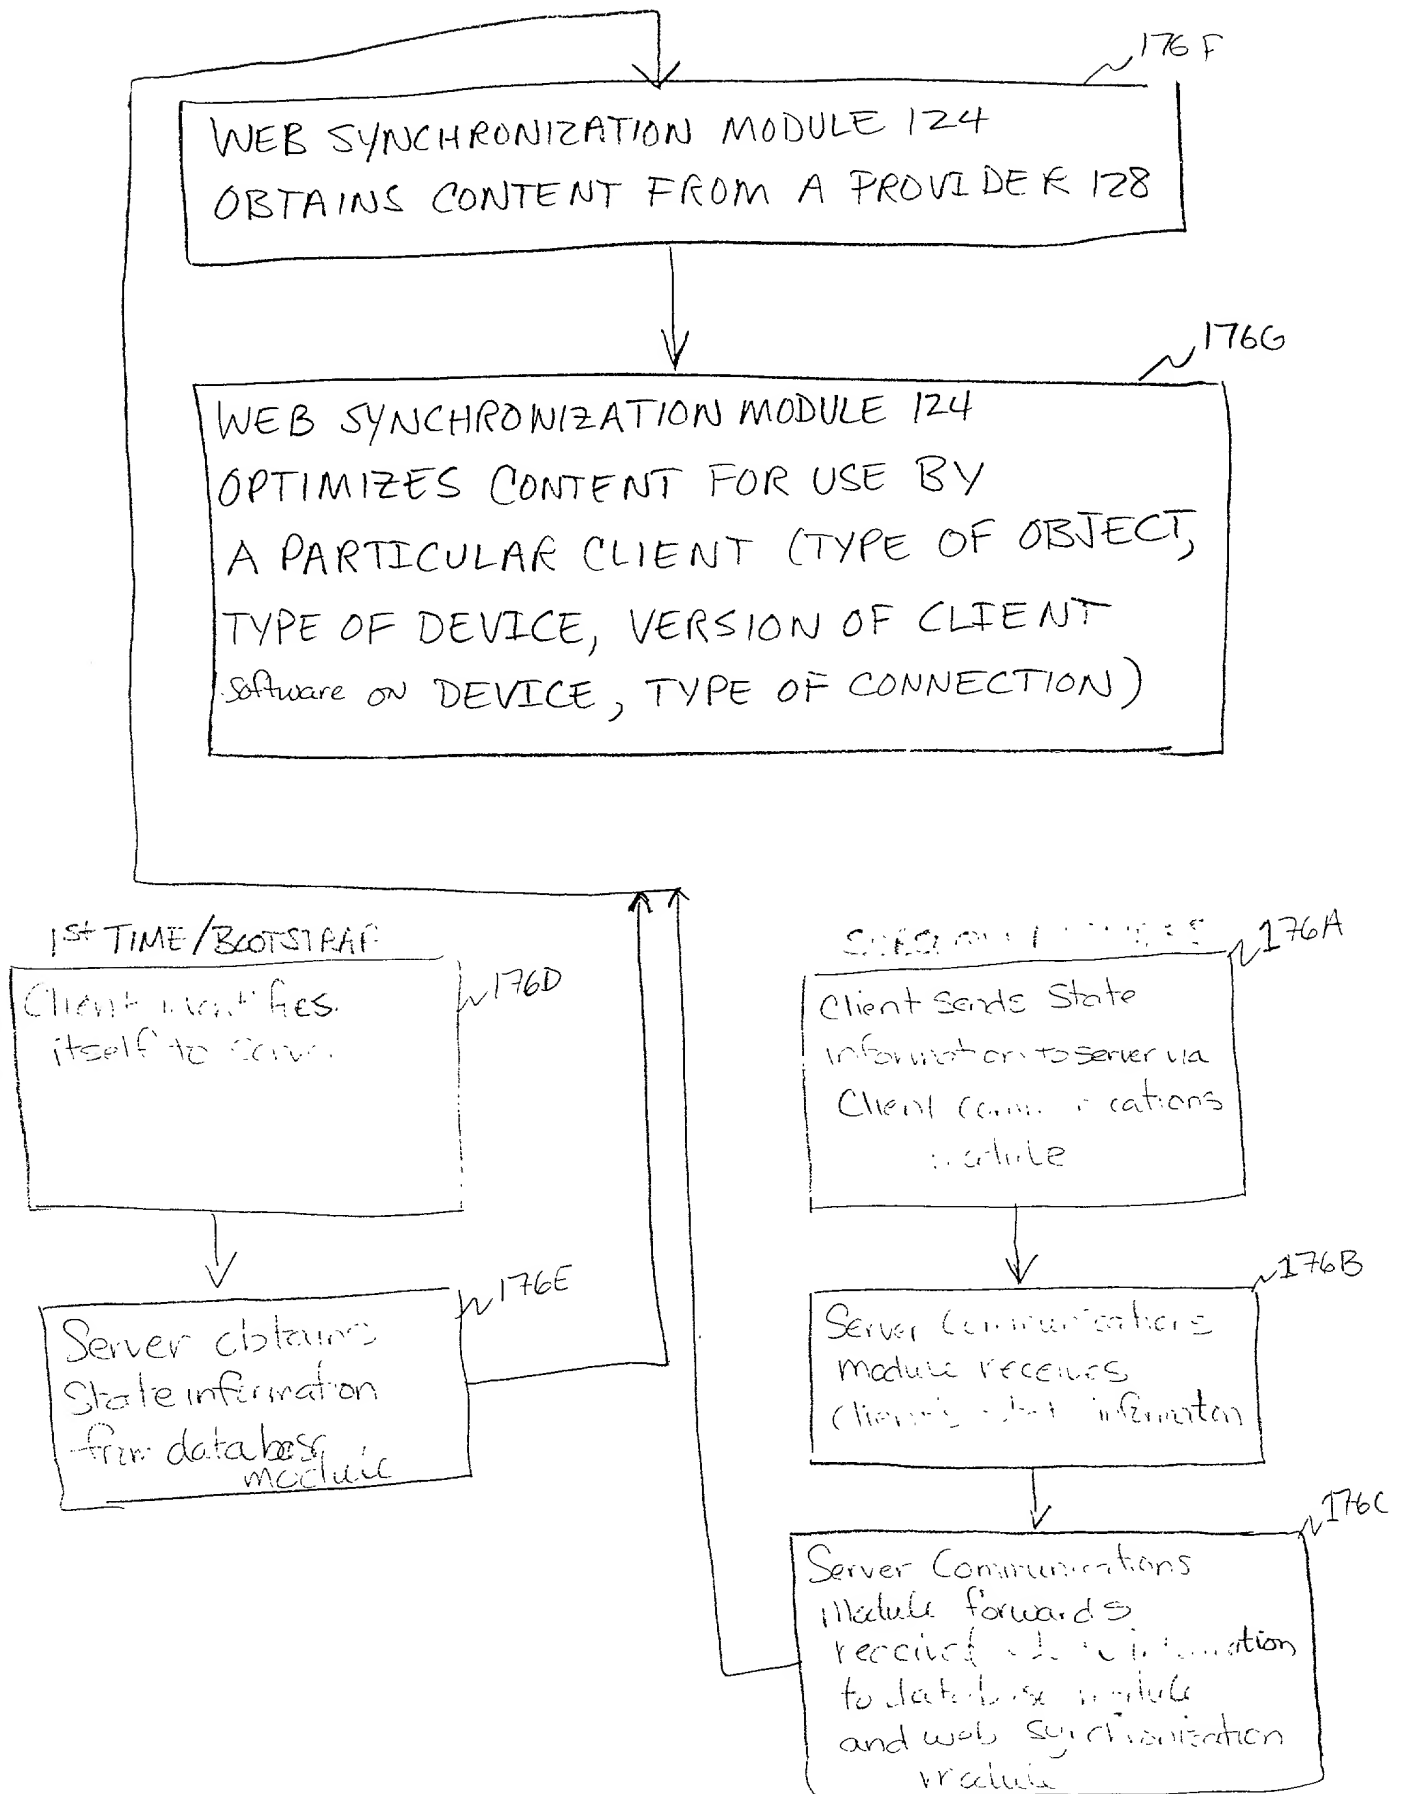 176F
WEB SYNCHRONIZATION MODULE 124
OBTAINS CONTENT FROM A PROVIDER 128
176G
WEB SYNCHRONIZATION MODULE 124
OPTIMIZES CONTENT FOR USE BY
A PARTICULAR CLIENT (TYPE OF OBJECT,
TYPE OF DEVICE, VERSION OF CLIENT
software ON DEVICE, TYPE OF CONNECTION)
1st TIME/BOOTSTRAP
176D
Client identifies
itself to server
176E
Server obtains
State information
from database
module
176A
Client sends State
information to server via
Client communications
module
176B
Server Communications
module receives
client's state information
176C
Server Communications
Module forwards
received state information
to database module
and web synchronization
module